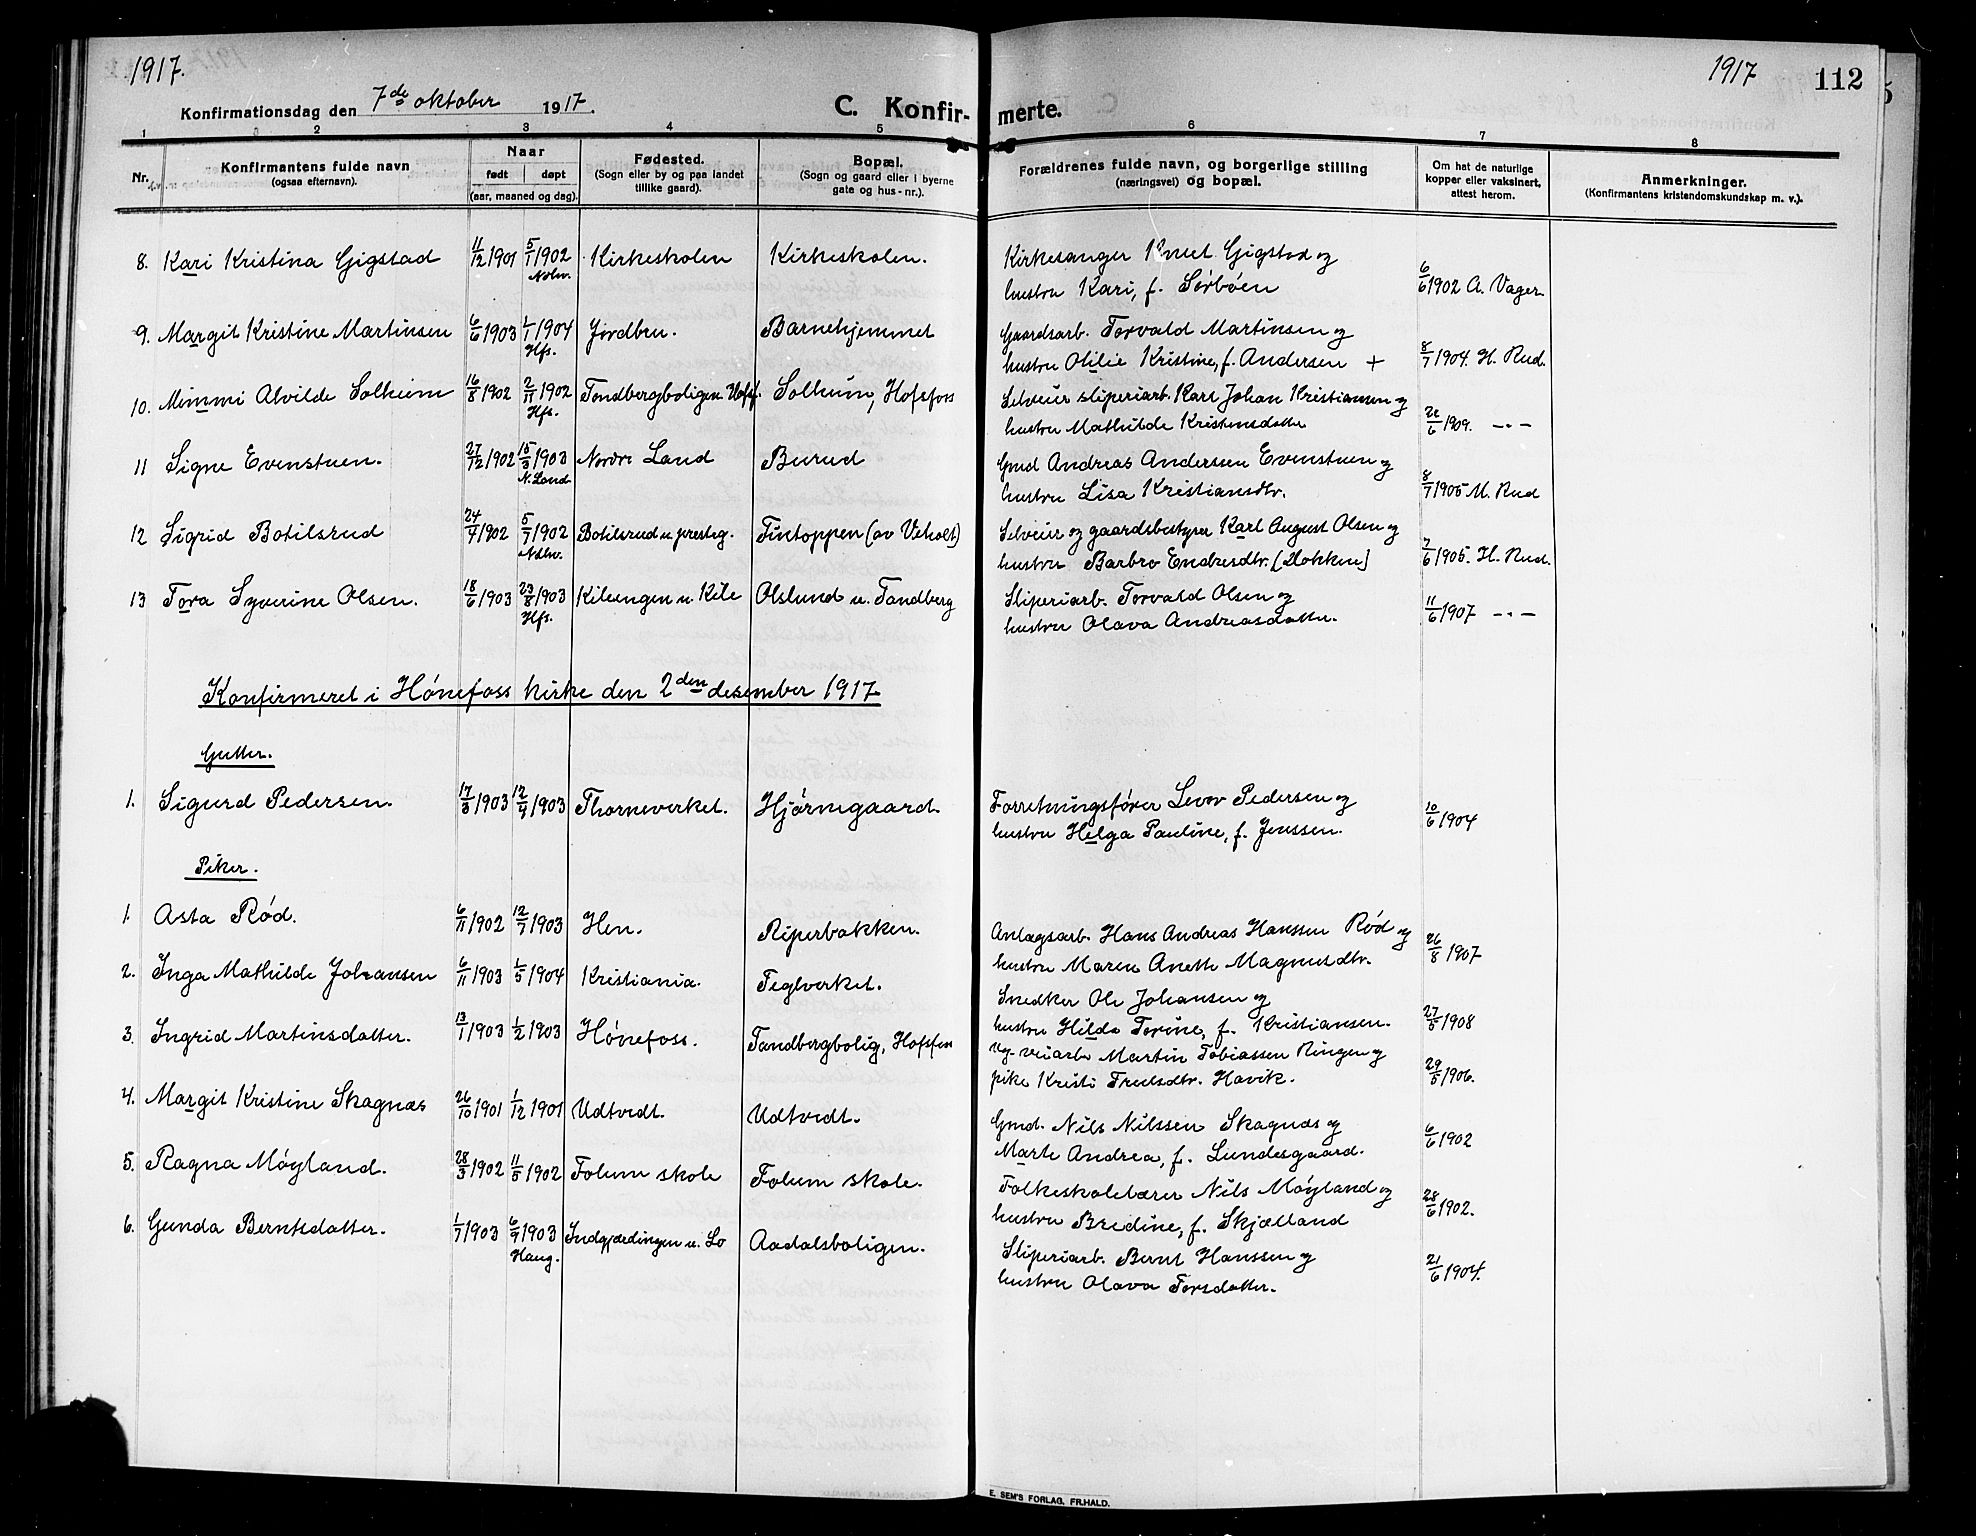 1917.
1917
112
Konfirmationsdag den 7de oktober 1917.
C. Konfirmerte.
1 2 3 4 5 6 7 8
Nr. Konfirmantens fulde navn (ogsaa efternavn). Naar født døpt (aar, maaned og dag). Fødested. (Sogn eller by og paa landet tillike gaard). Bopæl. (Sogn og gaard eller i byerne gate og hus-nr.). Forældrenes fulde navn, og borgerlige stilling (næringsvei) og bopæl. Om hat de naturlige kopper eller vaksinert, attest herom. Anmerkninger. (Konfirmantens kristendomskundskap m. v.).
8. Kari Kristina Gigstad 11/12 1901 5/1 1902 Kirkeskolen Kirkeskolen. Kirkesanger Knut Gigstad og
hustru Kari, f. Sørbøen 6/6 1902 A. Vager
9. Margit Kristine Martinsen 6/6 1903 1/1 1904 Hfs. Jordbru. Barnehjemmet Gaardsarb. Torvald Martinsen og
hustru Otilie Kristine, f. Andersen + 8/7 1904. H. Rud.
10. Mimmi Alvilde Solheim 16/8 1902 2/11 1902 Hfs. Tandbergboligen Hofsf. Solheim, Hofsfoss Selveier sliperiarb. Karl Johan Kristiansen og
hustru Mathilde Kristensdatter 22/6 1909. -"-
11 Signe Evenstuen. 27/12 1902 15/3 1903 N. Land Nordre Land Burud Gmd Andreas Andersen Evenstuen og
hustru Lisa Kristiansdtr. 8/7 1905 M. Rud
12 Sigrid Botilsrud 24/4 1902 5/7 1902 Botilsrud u. presteg. Tintoppen (av Veholt) Selveier og gaardsbestyrer Karl August Olsen og
hustru Barbro Endresdtr. [Dokken] 7/6 1905. H. Rud.
13 Tora Syverine Olsen. 18/6 1903 23/8 1903 Hfs. Kileengen u. Kile Olslund u. Tandberg Sliperiarb. Torvald Olsen og
hustru Olava Andreasdatter. 11/6 1907 -"-
Konfirmeret i Hønefoss kirke den 2den desember 1917.
Gutter.
1. Sigurd Pedersen. 17/3 1903 12/4 1903 Thorneverket. Hjørnegaard. Forretningsfører Levor Pedersen og
hustru Helga Pauline, f. Jenssen. 10/6 1904
Piker.
1. Asta Rød. 6/11 1902 12/7 1903 Hen. Riperbakken. Anlægsarb. Hans Andreas Hanssen Rød og
hustru Maren Anette Magnusdtr. 26/8 1907
2. Inga Mathilde Johansen 6/11 1903 1/5 1904 Kristiania. Teglverket. Snedker Ole Johansen og
hustru Hilda Torine, f. Kristiansen. 27/5 1908
3. Ingrid Martinsdatter. 13/1 1903 1/2 1903 Hønefoss. Tandbergbolig, Hofsfoss Martin Tobiassen Ringen og
pike Kristi Truelsdtr. Havik. 29/5 1906.
4. Margit Kristine Skagnæs 26/10 1901 1/12 1901 Udtvedt. Udtvedt. Gmd. Nils Nilssen Skagnæs og
Marte Andrea, f. Lundesgaard. 6/6 1902
5. Ragna Møyland. 28/3 1902 11/5 1902 Folum skole Folum skole. Folkeskolelærer Nils Møyland og
hustru Bredine, f. Skjælland 28/6 1902.
6. Gunda Berntsdatter. 1/7 1903 6/9 1903 Haug. Indgjærdingen u. Lo Aadalsboligen. Sliperiarb. Bernt Hanssen og
hustru Olava Torsdatter. 21/6 1904.
E. SEM'S FORLAG, FR.HALD.